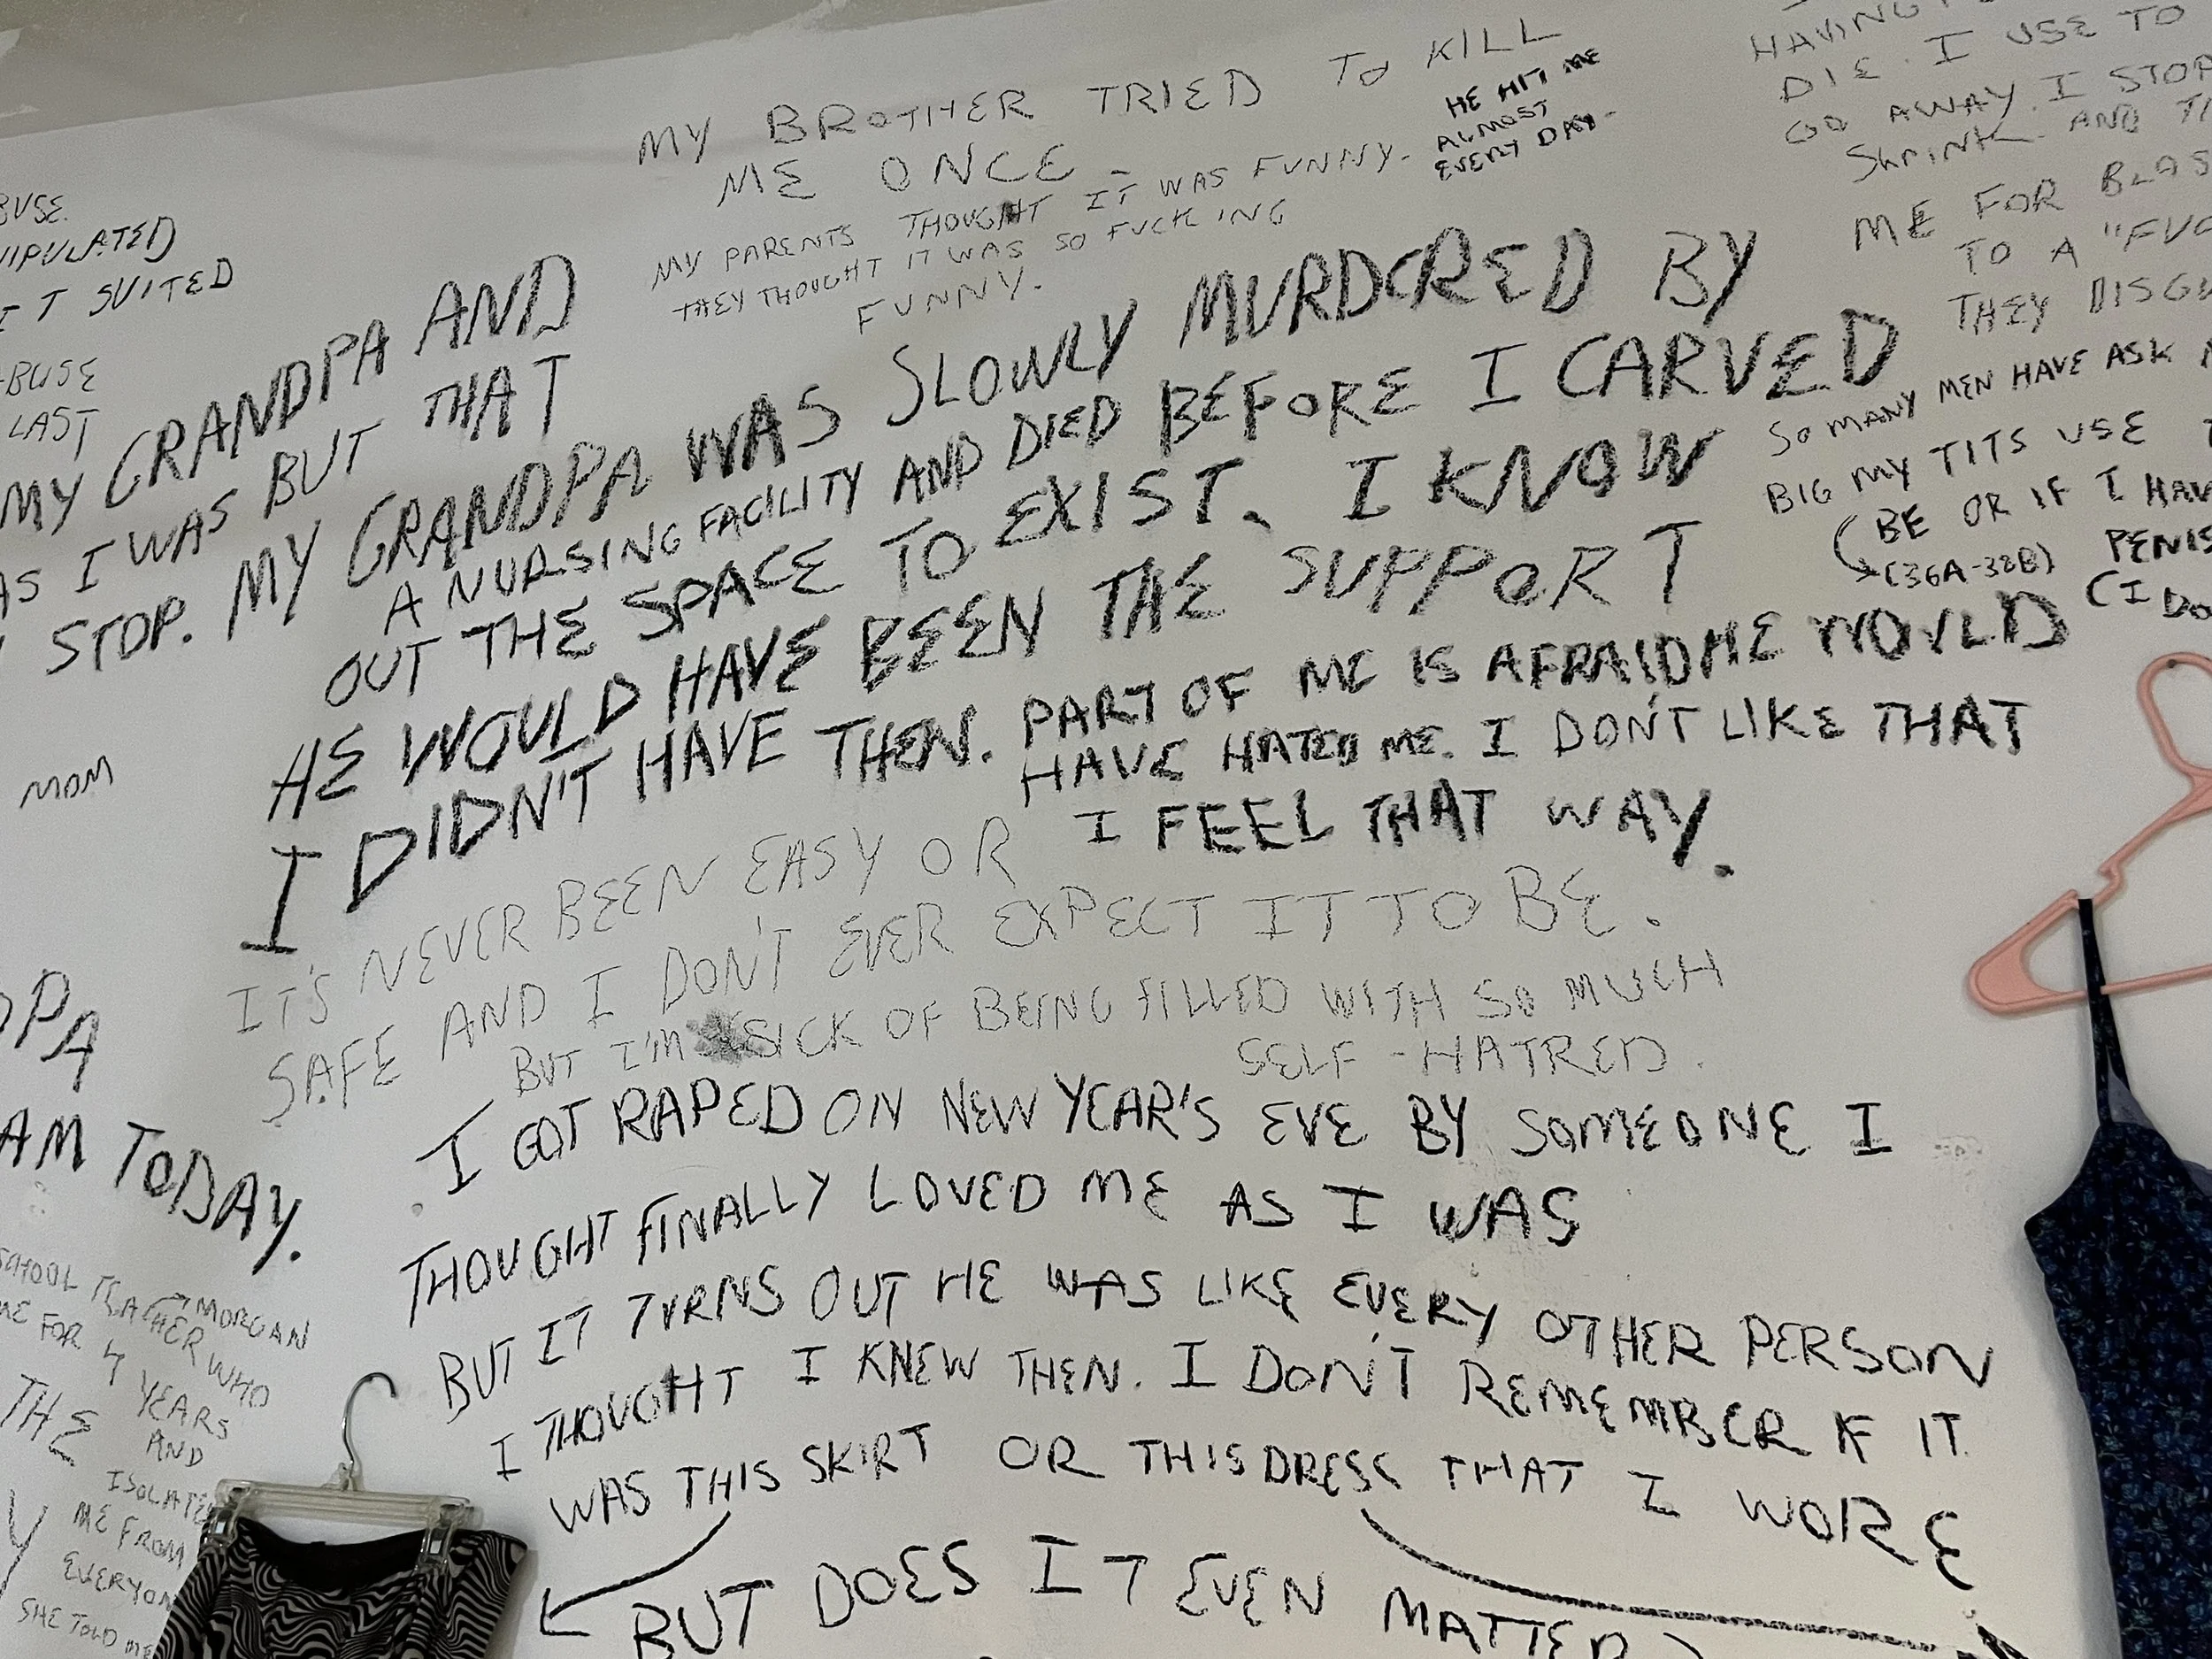 MY BROTHER TRIED TO KILL
ME ONCE -
HE HIT ME
ALMOST
EVERY DAY -
MY PARENTS THOUGHT IT WAS FUNNY.
THEY THOUGHT IT WAS SO FUCKING
FUNNY.
HAVING
DIE. I USE TO
GO AWAY. I STOP
SHRINK. AND
ME FOR
TO A "
THEY
SO MANY MEN HAVE ASK
BIG MY TITS USE
BE OR IF I
(36A-38B) PENIS
(I DO
SUITED
LAST
MY GRANDPA AND
AS I WAS BUT THAT
STOP. MY GRANDPA WAS SLOWLY MURDERED BY
A NURSING FACILITY AND DIED BEFORE I CARVED
OUT THE SPACE TO EXIST. I KNOW
HE WOULD HAVE BEEN THE SUPPORT
I DIDN'T HAVE THEN. PART OF ME IS AFRAID HE WOULD
HAVE HATED ME. I DON'T LIKE THAT
I FEEL THAT WAY.
MOM
IT'S NEVER BEEN EASY OR
SAFE AND I DON'T EVER EXPECT IT TO BE.
BUT I'M SICK OF BEING FILLED WITH SO MUCH
SELF-HATRED.
AM TODAY.
I GOT RAPED ON NEW YEAR'S EVE BY SOMEONE I
THOUGHT FINALLY LOVED ME AS I WAS
BUT IT TURNS OUT HE WAS LIKE EVERY OTHER PERSON
I THOUGHT I KNEW THEN. I DON'T REMEMBER IF IT
WAS THIS SKIRT OR THIS DRESS THAT I WORE
BUT DOES IT EVEN MATTER?
SCHOOL TEACHER WHO
MORGAN
ME FOR 4 YEARS
AND
ISOLATED
ME FROM
EVERYON
SHE TOLD ME
THE